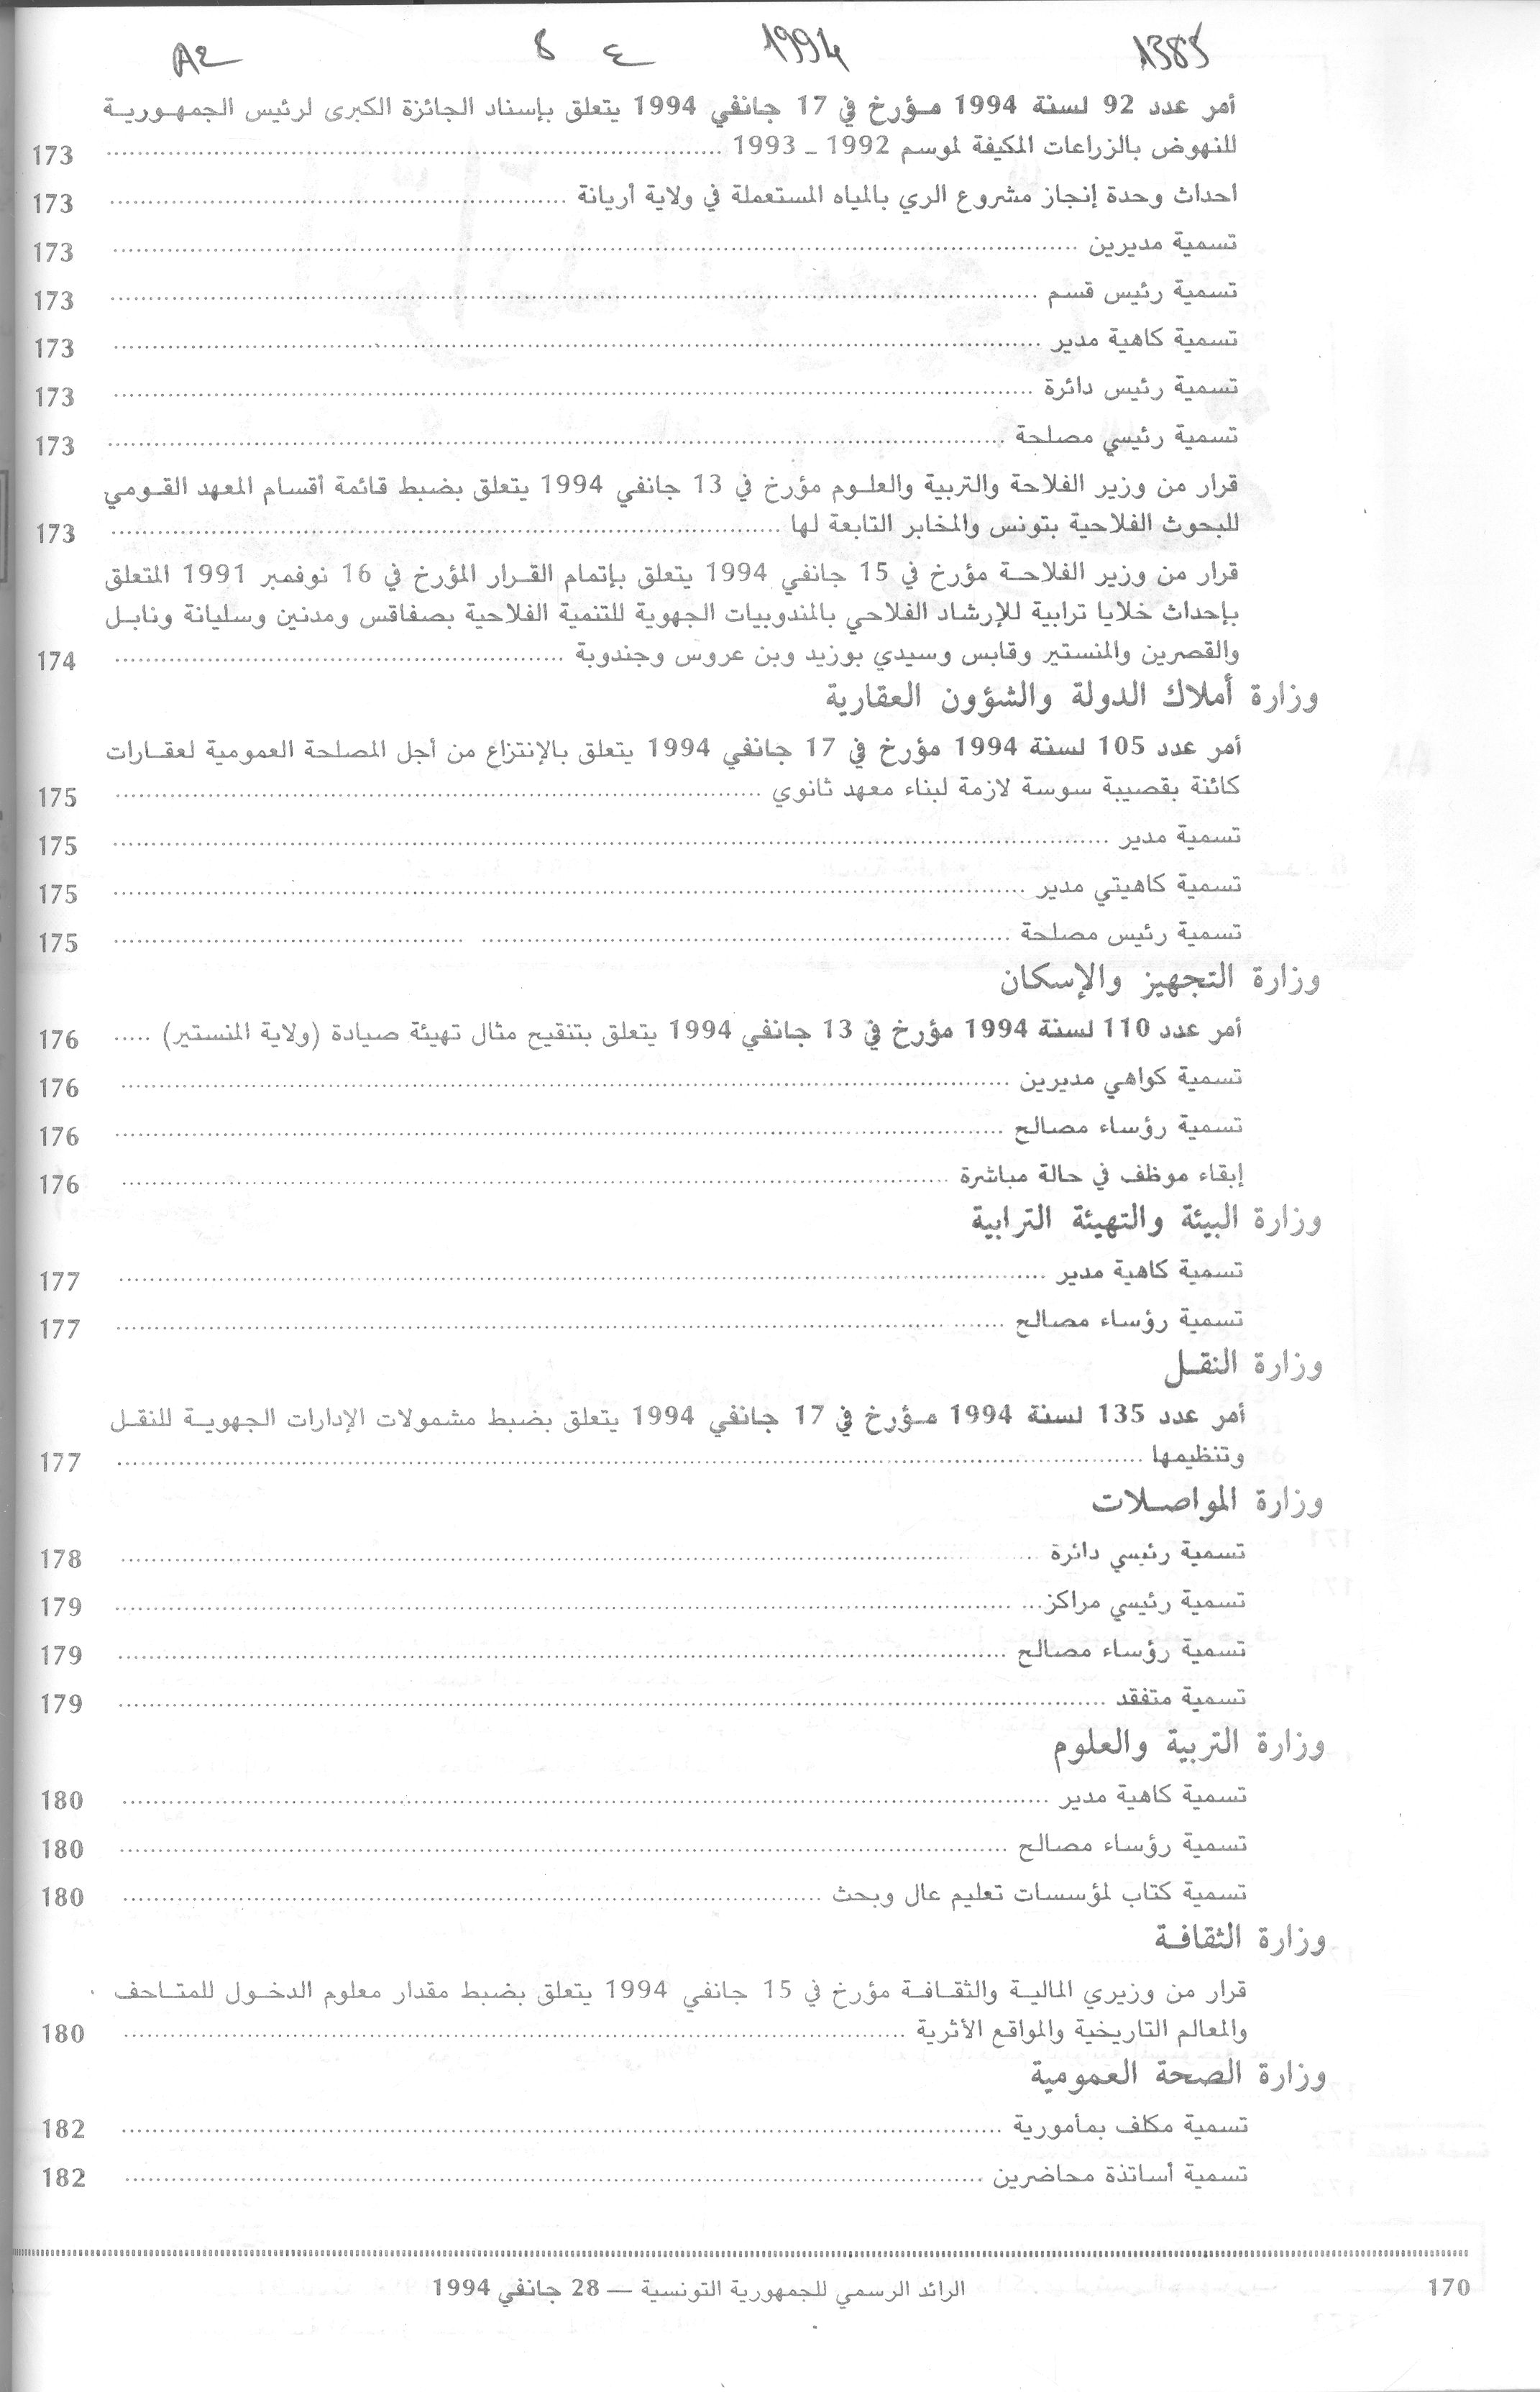 1385 1994 ع 8 A2
أمر عدد 92 لسنة 1994 مـؤرخ في 17 جانفي 1994 يتعلق بإسناد الجائزة الكبرى لرئيس الجمهـوريـة
للنهوض بالزراعات المكيفة لموسم 1992 ـ 1993 ........ 173
احداث وحدة إنجاز مشروع الري بالمياه المستعملة في ولاية أريانة ........ 173
تسمية مديرين ........ 173
تسمية رئيس قسم ........ 173
تسمية كاهية مدير ........ 173
تسمية رئيس دائرة ........ 173
تسمية رئيسي مصلحة ........ 173
قرار من وزير الفلاحة والتربية والعلـوم مؤرخ في 13 جانفي 1994 يتعلق بضبط قائمة أقسام المعهد القـومي
للبحوث الفلاحية بتونس والمخابر التابعة لها ........ 173
قرار من وزير الفلاحـة مؤرخ في 15 جانفي 1994 يتعلق بإتمام القـرار المؤرخ في 16 نوفمبر 1991 المتعلق
بإحداث خلايا ترابية للإرشاد الفلاحي بالمندوبيات الجهوية للتنمية الفلاحية بصفاقس ومدنين وسليانة ونابـل
والقصرين والمنستير وقابس وسيدي بوزيد وبن عروس وجندوبة ........ 174
وزارة أملاك الدولة والشؤون العقارية
أمر عدد 105 لسنة 1994 مؤرخ في 17 جانفي 1994 يتعلق بالإنتزاع من أجل المصلحة العمومية لعقـارات
كائنة بقصيبة سوسة لازمة لبناء معهد ثانوي ........ 175
تسمية مدير ........ 175
تسمية كاهيتي مدير ........ 175
تسمية رئيس مصلحة ........ 175
وزارة التجهيز والإسكان
أمر عدد 110 لسنة 1994 مؤرخ في 13 جانفي 1994 يتعلق بتنقيح مثال تهيئة صيادة (ولاية المنستير) ..... 176
تسمية كواهي مديرين ........ 176
تسمية رؤساء مصالح ........ 176
إبقاء موظف في حالة مباشرة ........ 176
وزارة البيئة والتهيئة الترابية
تسمية كاهية مدير ........ 177
تسمية رؤساء مصالح ........ 177
وزارة النقـل
أمر عدد 135 لسنة 1994 مـؤرخ في 17 جانفي 1994 يتعلق بضبط مشمولات الإدارات الجهويـة للنقـل
وتنظيمها ........ 177
وزارة المواصـلات
تسمية رئيسي دائرة ........ 178
تسمية رئيسي مراكز ........ 179
تسمية رؤساء مصالح ........ 179
تسمية متفقد ........ 179
وزارة التربية والعلوم
تسمية كاهية مدير ........ 180
تسمية رؤساء مصالح ........ 180
تسمية كتاب لمؤسسات تعليم عال وبحث ........ 180
وزارة الثقافـة
قرار من وزيري الماليـة والثقـافـة مؤرخ في 15 جانفي 1994 يتعلق بضبط مقدار معلوم الدخـول للمتـاحف
والمعالم التاريخية والمواقع الأثرية ........ 180
وزارة الصحة العمومية
تسمية مكلف بمأمورية ........ 182
تسمية أساتذة محاضرين ........ 182
170 الرائد الرسمي للجمهورية التونسية — 28 جانفي 1994